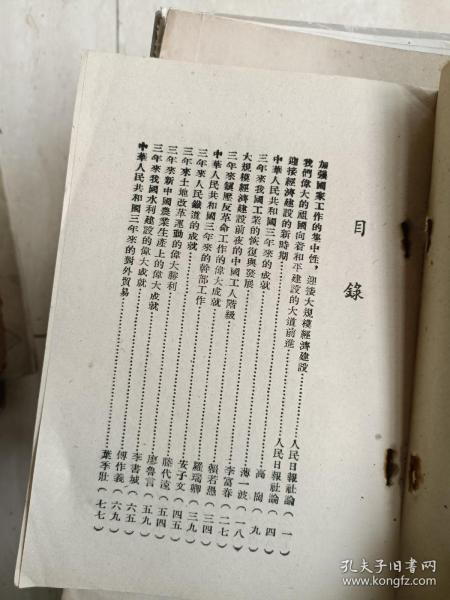 目錄
加强國家工作的集中性，迎接大規模經濟建設……人民日報社論（一）
我們偉大的祖國向着和平建設的大道前進……人民日報社論（四）
迎接經濟建設的新時期……高崗（九）
中華人民共和國三年來的成就……薄一波（一八）
三年來我國工業的恢復與發展……李富春（二七）
大規模經濟建設前夜的中國工人階級……賴若愚（三四）
三年來鎮壓反革命工作的偉大成就……羅瑞卿（三九）
中華人民共和國三年來的幹部工作……安子文（四五）
三年來人民鐵道的成就……滕代遠（五四）
三年來土地改革運動的偉大勝利……廖魯言（五九）
三年來新中國農業生產上的偉大成就……李書城（六五）
三年來我國水利建設的偉大成就……傅作義（六九）
中華人民共和國三年來的對外貿易……葉季壯（七七）
孔夫子旧书网
www.kongfz.com